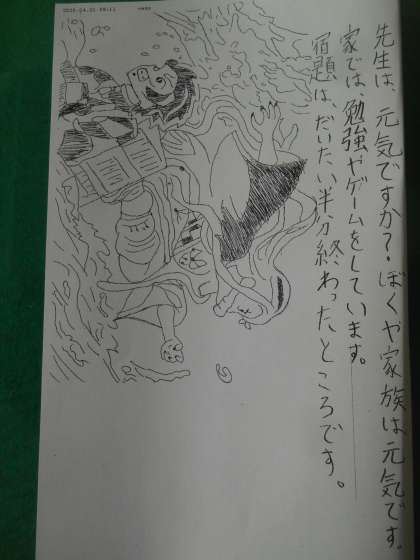 先生は、元気ですか?ぼくや家族は元気です。
家では、勉強やゲームをしています。
宿題は、だいたい半分終わったところです。